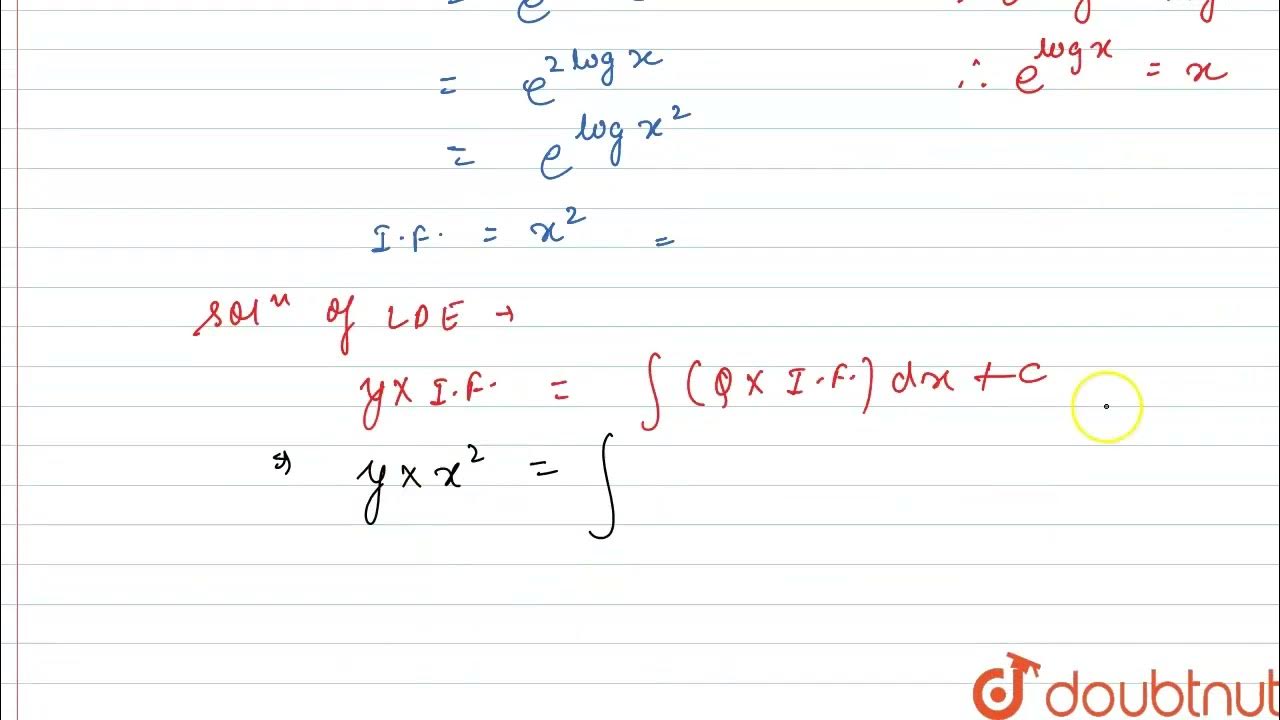 = e^{2 log x}
∴ e^{log x} = x
= e^{log x^2}
I.F. = x^2 =
Solⁿ of LDE →
y × I.F. = ∫ (Q × I.F.) dx + C
⇒ y × x^2 = ∫
doubtnut